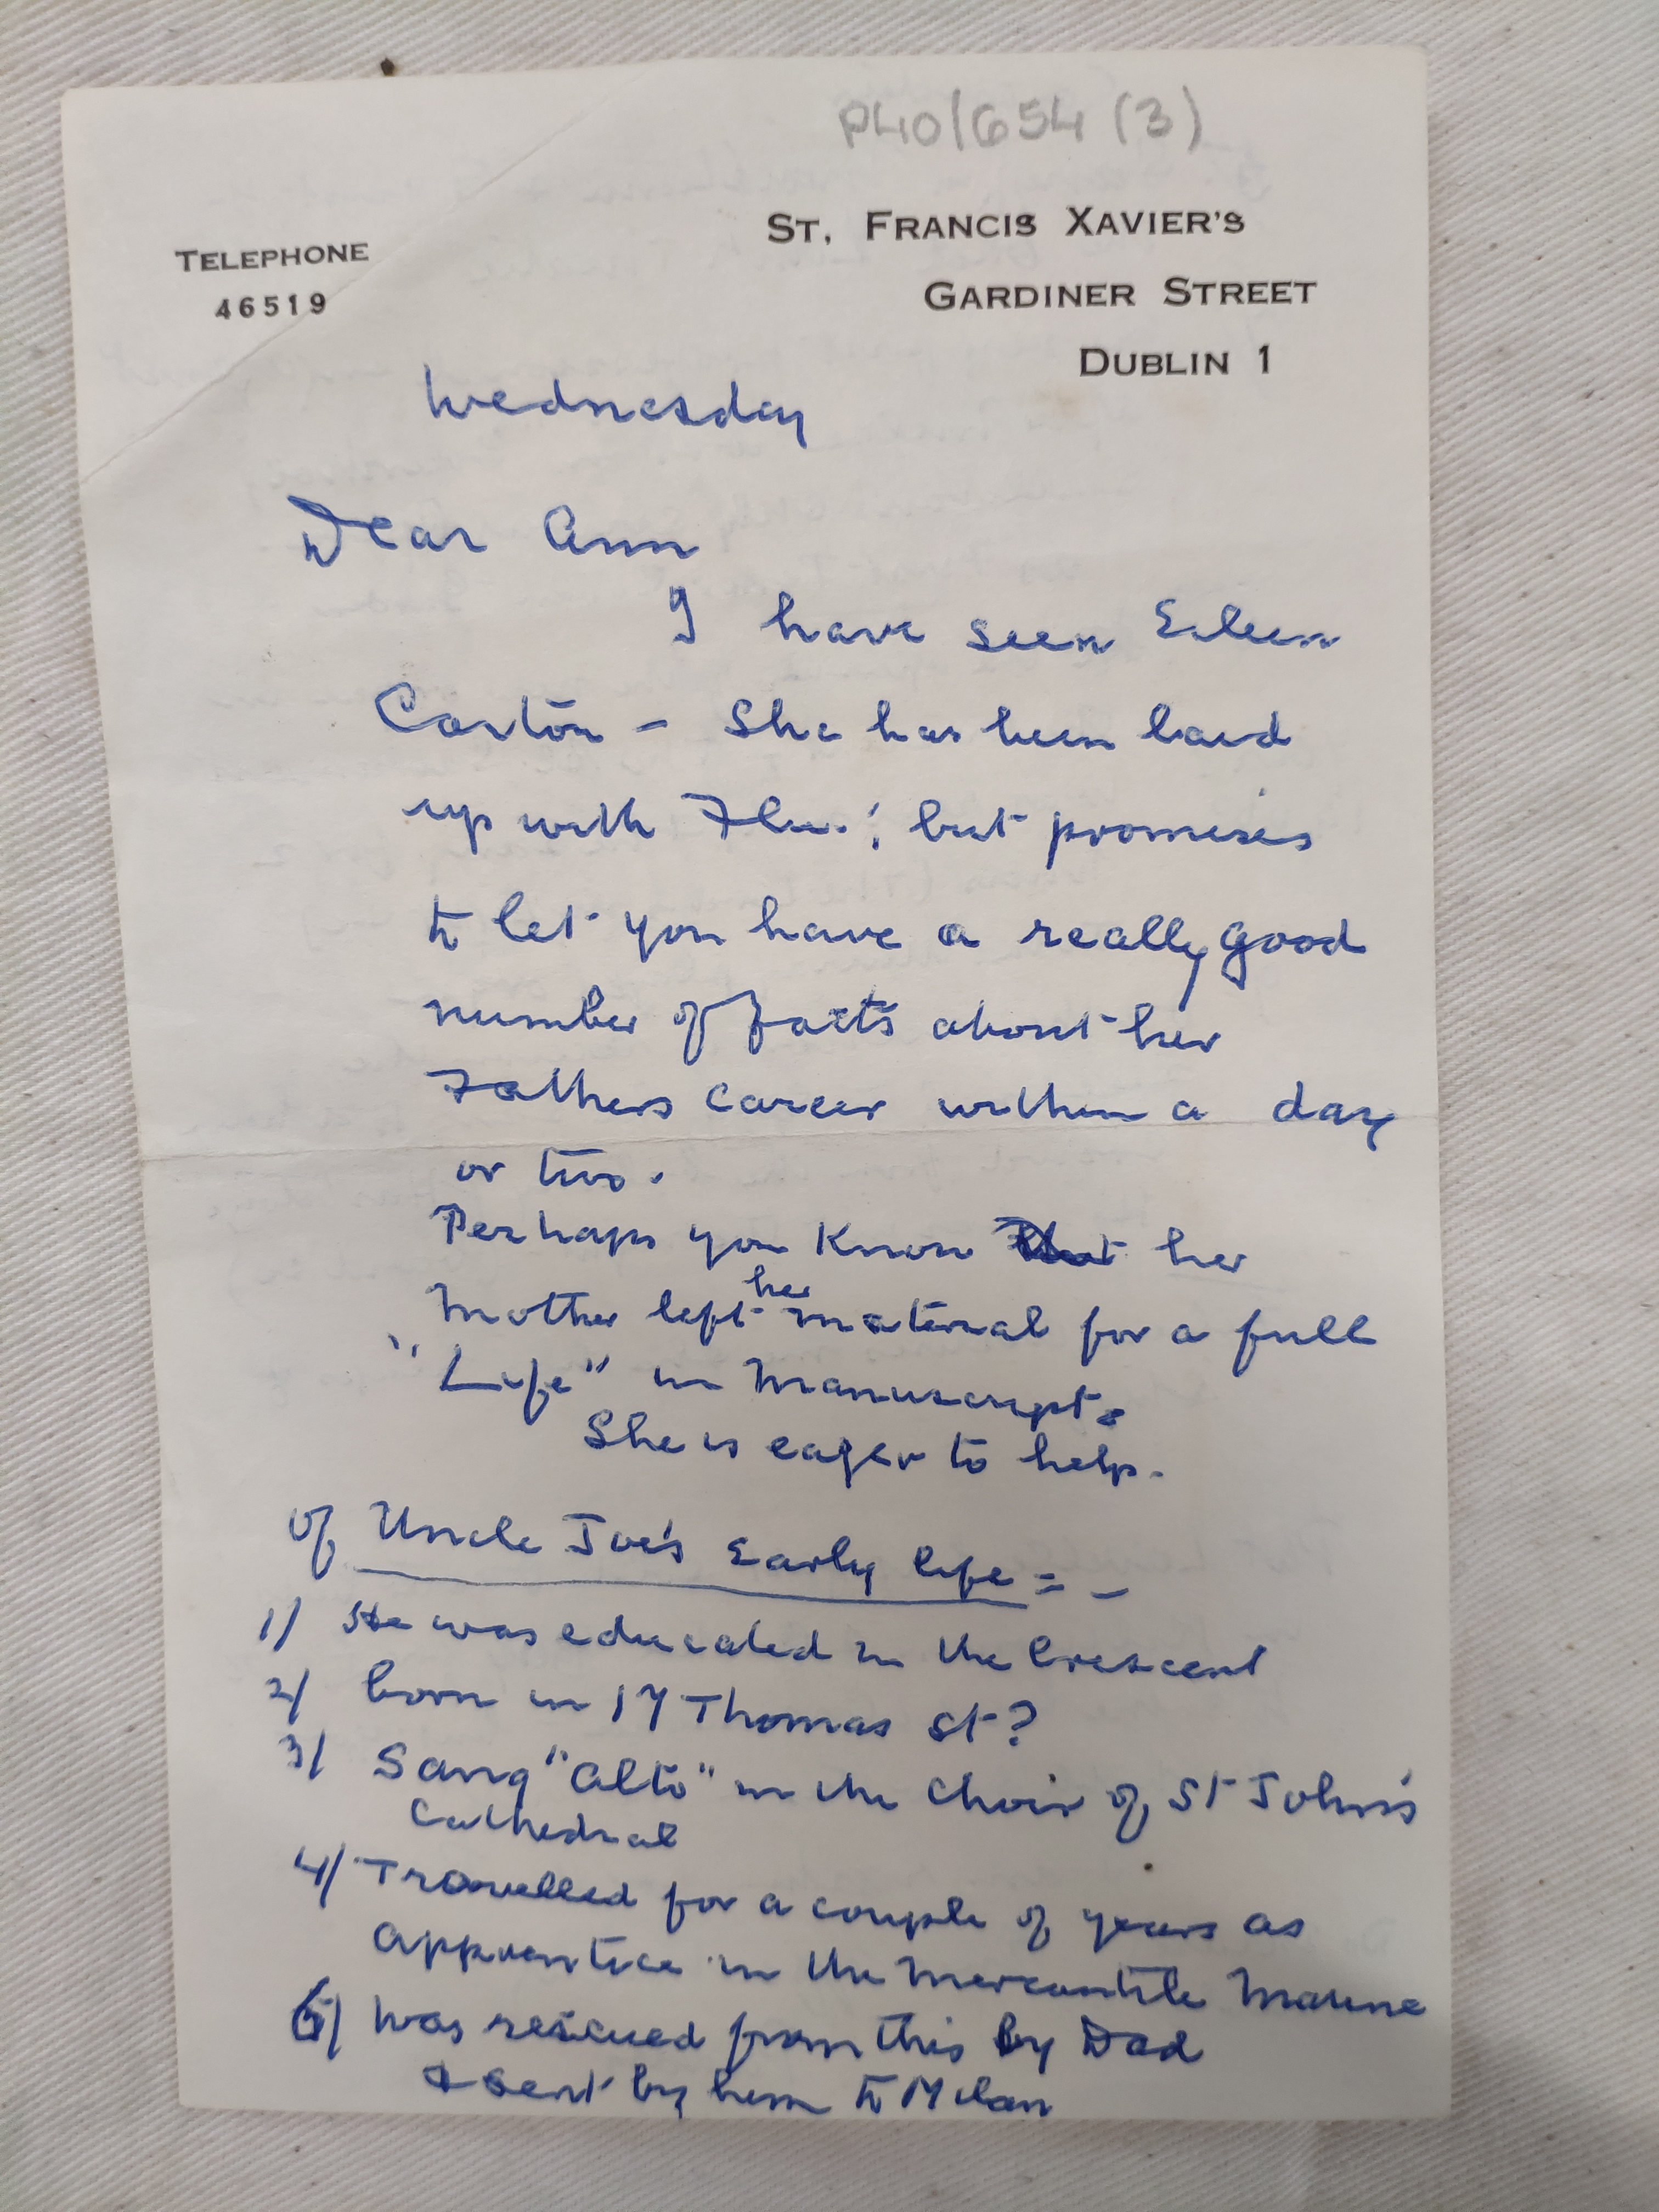 P40/654 (3)
TELEPHONE
46519
ST. FRANCIS XAVIER'S
GARDINER STREET
DUBLIN 1
Wednesday
Dear Ann
I have seen Eileen
Carton – She has been laid
up with Flu.; but promises
to let you have a really good
number of facts about her
Fathers career within a day
or two.
Perhaps you know that her
Mother left her material for a full
"Life" in Manuscript.
She is eager to help.
Of Uncle Joe's Early life = –
1) He was educated in the Crescent
2) born in 17 Thomas St?
3) Sang "Alto" in the Choir of St John's
Cathedral
4) Travelled for a couple of years as
Apprentice in the Mercantile Marine
5) Was rescued from this by Dad
& sent by him to Milan